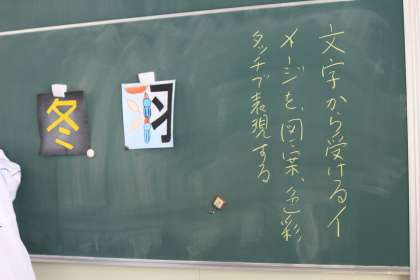 文字から受けるイ
メージを、図案、色彩
タッチで表現する
羽
冬